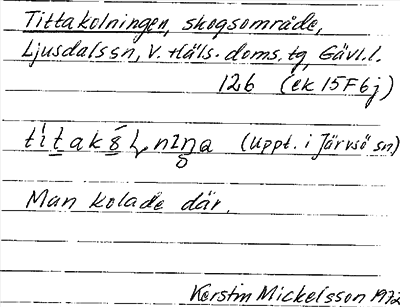 Tittakolningen, skogsområde,
Ljusdals sn, V. Häls. doms. tg, Gävl. l.
126 (ek 15F6j)
(Uppt. i Järvsö sn)
Man kolade där.
Kerstin Mickelsson 1972